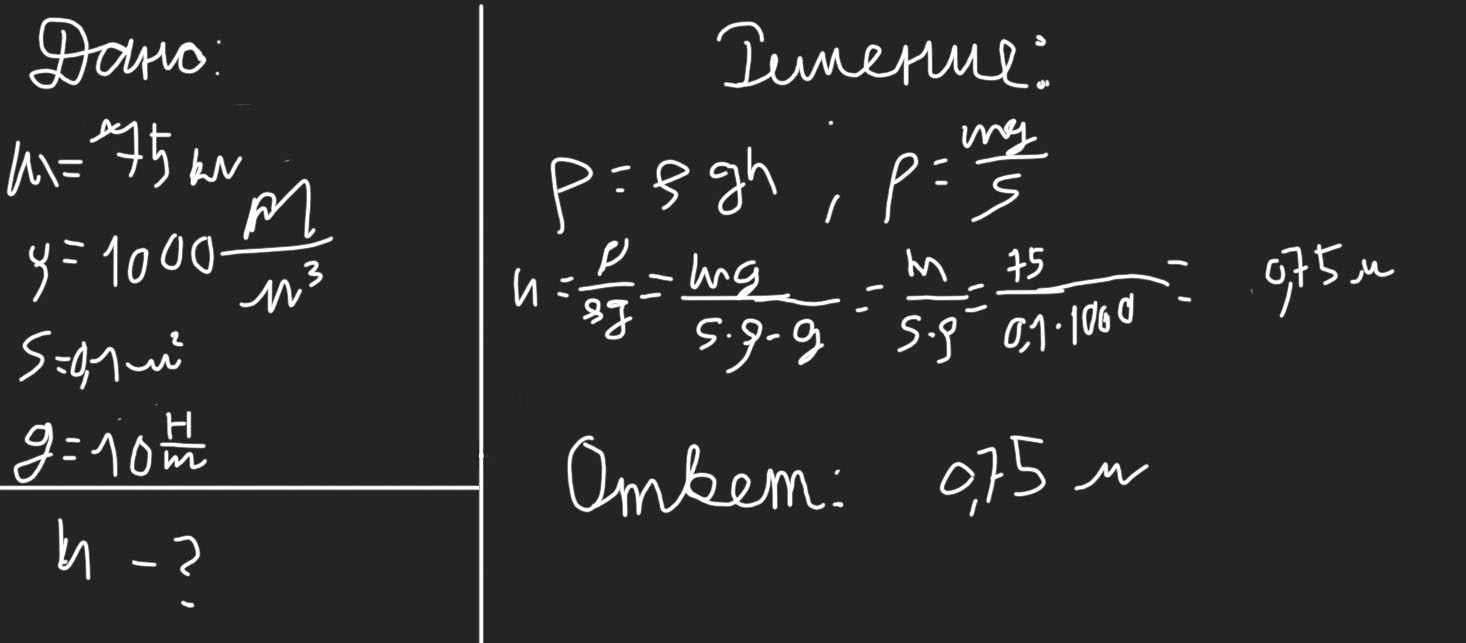 Дано:
m = 75 кг
ρ = 1000 кг/м³
S = 0,1 м²
g = 10 Н/m
h - ?
Решение:
p = ρgh , p = mg/S
h = p/ρg = mg/S·ρ·g = m/S·ρ = 75/0,1·1000 = 0,75 м
Ответ: 0,75 м